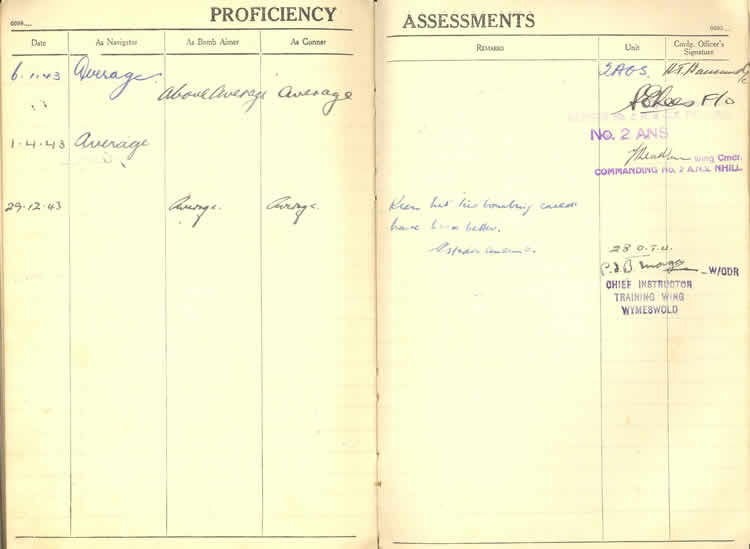 PROFICIENCY
Date As Navigator As Bomb Aimer As Gunner
6.1.43 Average
" Above Average Average
1-4-43 Average
29.12.43 Average. Average.
ASSESSMENTS
REMARKS Unit Cmdg. Officer's Signature
2AOS.
F/O
No. 2 ANS
Wing Cmdr.
COMMANDING No. 2 A.N.S. NHILL.
Keen but his bombing could
have been better.
28 O.T.U.
W/CDR
CHIEF INSTRUCTOR
TRAINING WING
WYMESWOLD